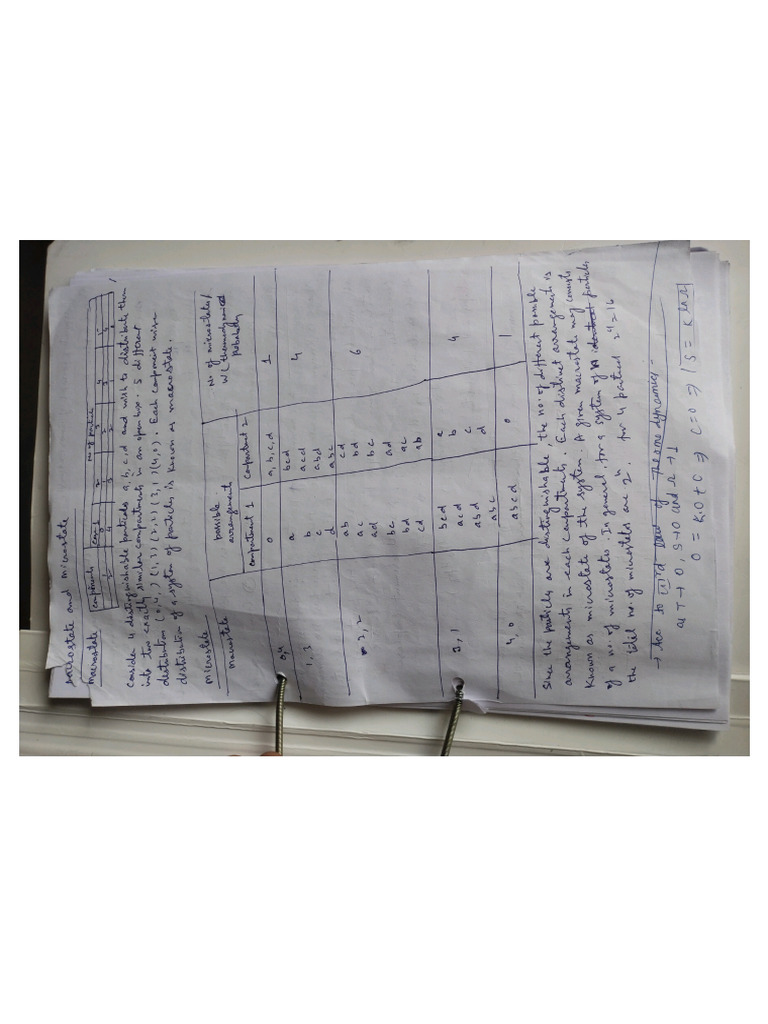 Macrostate and Microstate
Macrostate
Compartments No of particles
Com 1 0 1 2 3 4
2 4 3 2 1 0
Consider 4 distinguishable particles a, b, c, d and wish to distribute them
into two exactly similar compartments in an open box. 5 different
distribution (0,4) (1,3) (2,2) (3,1) (4,0). Each compartment wise
distribution of a system of particles is known as macrostate.
Microstate
Macrostate possible arrangement No of microstates/
w/ thermodynamic Probability
compartment 1 compartment 2
0,4 0 a,b,c,d 1
1,3 a bcd 4
b acd
c abd
d abc
2,2 ab cd 6
ac bd
ad bc
bc ad
bd ac
cd ab
3,1 bcd a 4
acd b
abd c
abc d
4,0 abcd 0 1
Since the particles are distinguishable, the no. of different possible
arrangements in each compartments. Each distinct arrangement is
known as microstate of the system. A given macrostate may consists
of a no. of microstates. In general, for a system of n particles
the total no. of microstates are 2ⁿ. for 4 particed 2⁴=16
→ Acc to IIIrd law of Thermodynamics -
as T→0, S→0 and Ω→1
0 = K.0 + C ⇒ C=0 ⇒ S = K ln Ω